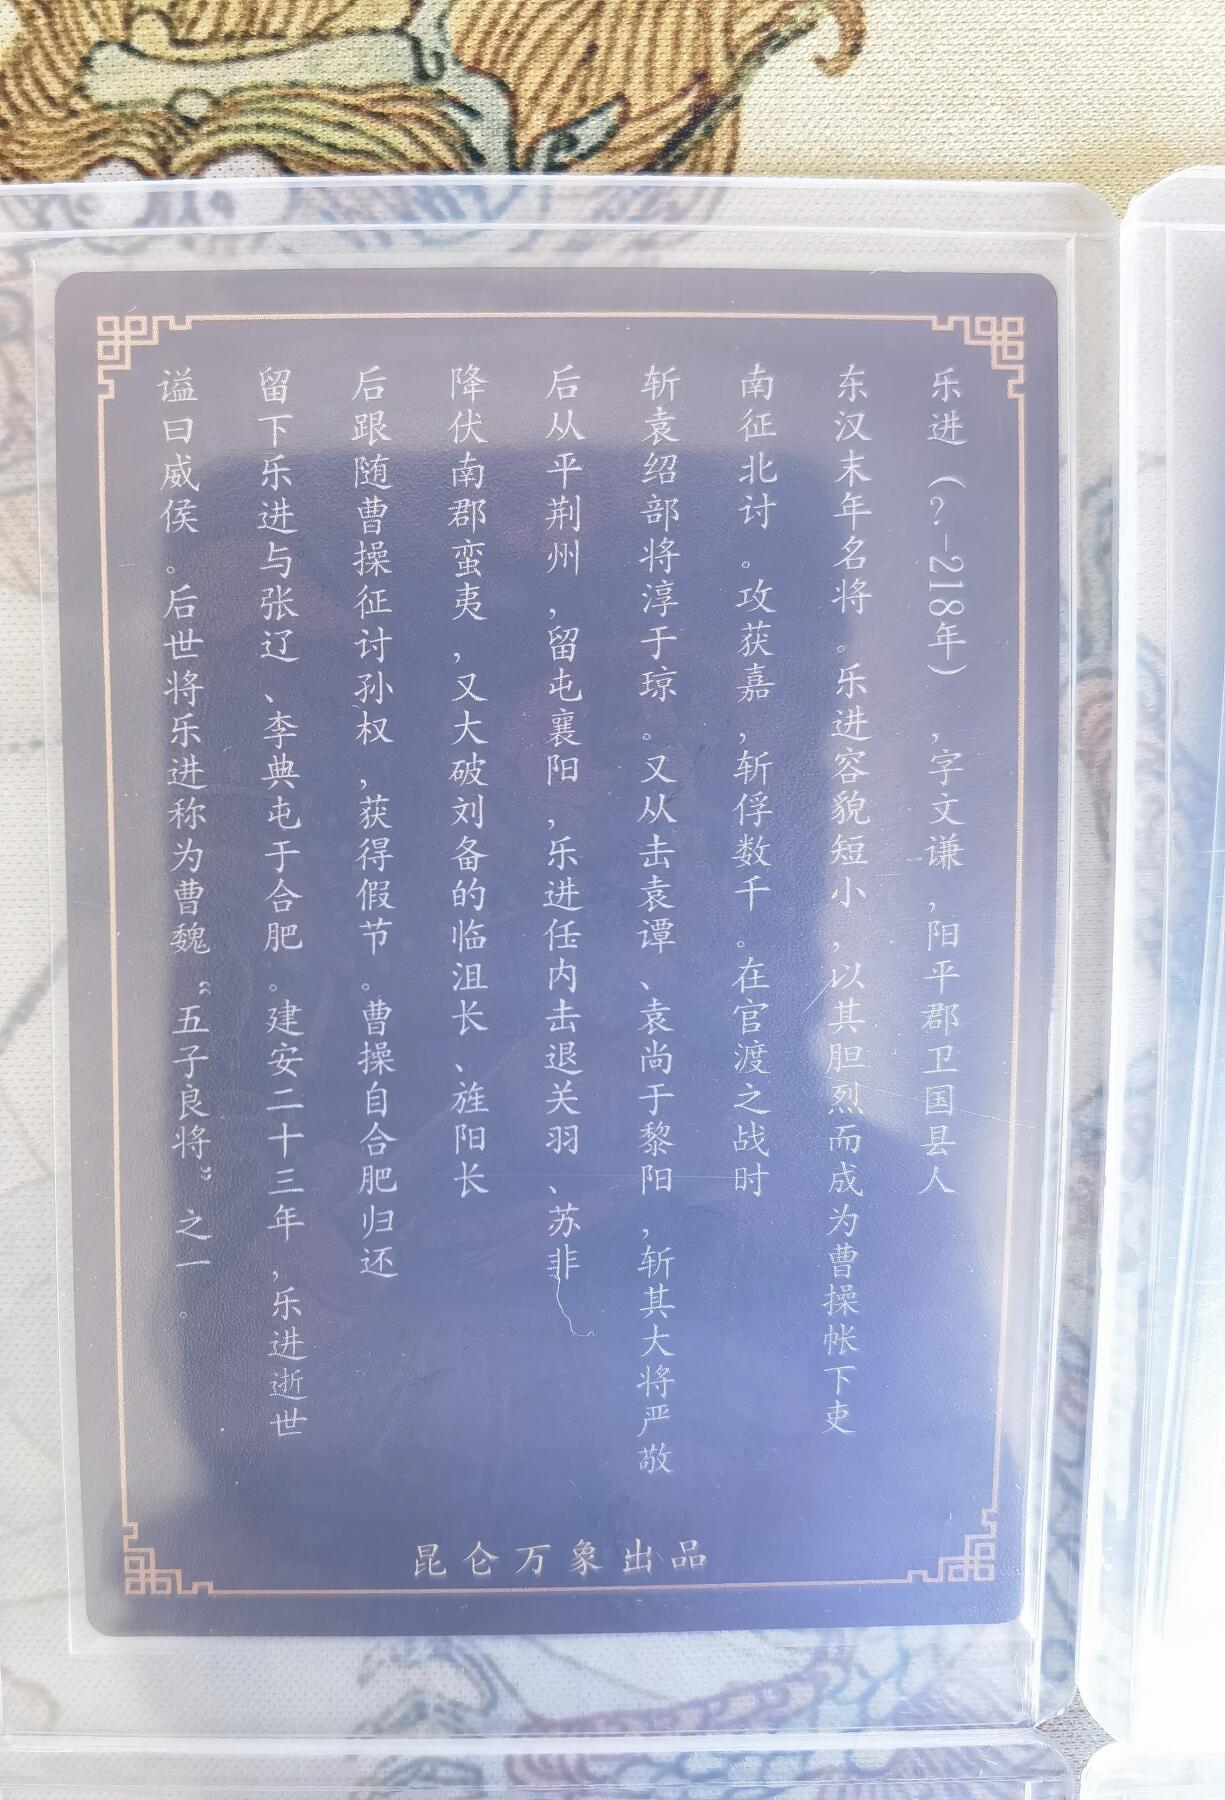 乐进（?-218年），字文谦，阳平郡卫国县人
东汉末年名将。乐进容貌短小，以其胆烈而成为曹操帐下吏
南征北讨。攻获嘉，斩俘数千。在官渡之战时
斩袁绍部将淳于琼。又从击袁谭、袁尚于黎阳，斩其大将严敬
后从平荆州，留屯襄阳，乐进任内击退关羽、苏非
降伏南郡蛮夷，又大破刘备的临沮长、旌阳长
后跟随曹操征讨孙权，获得假节。曹操自合肥归还
留下乐进与张辽、李典屯于合肥。建安二十三年，乐进逝世
谥曰威侯。后世将乐进称为曹魏“五子良将”之一。
昆仑万象出品